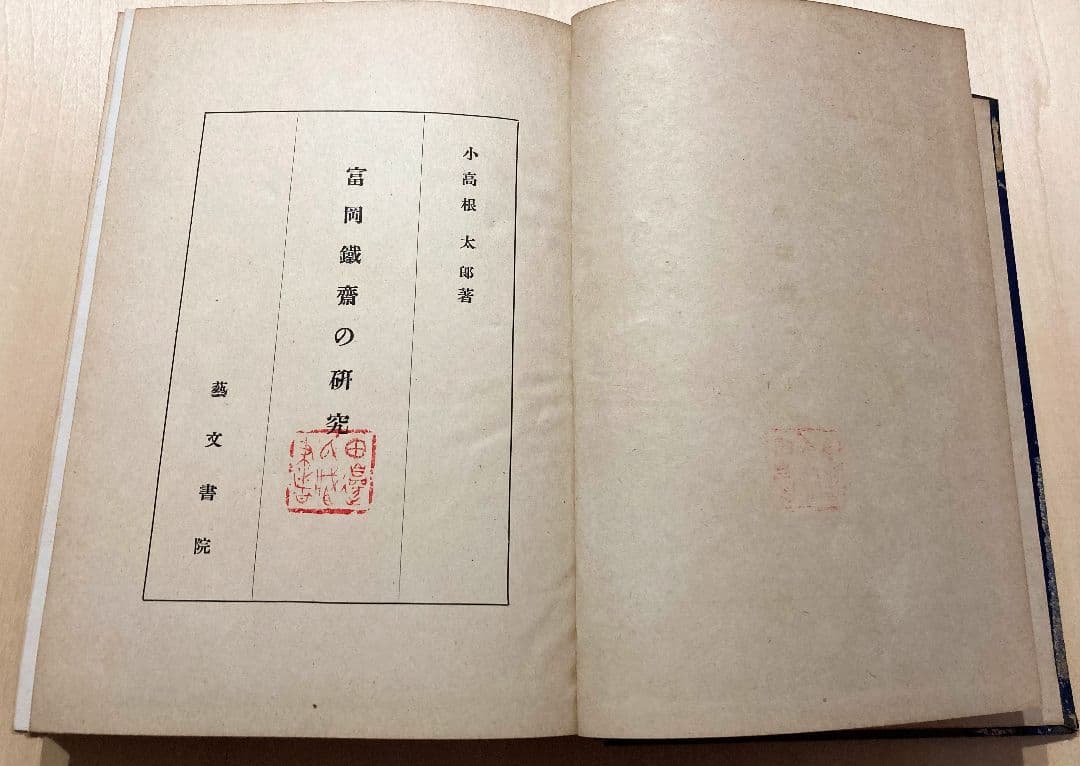 小高根太郎著
富岡鐵齋の研究
藝文書院